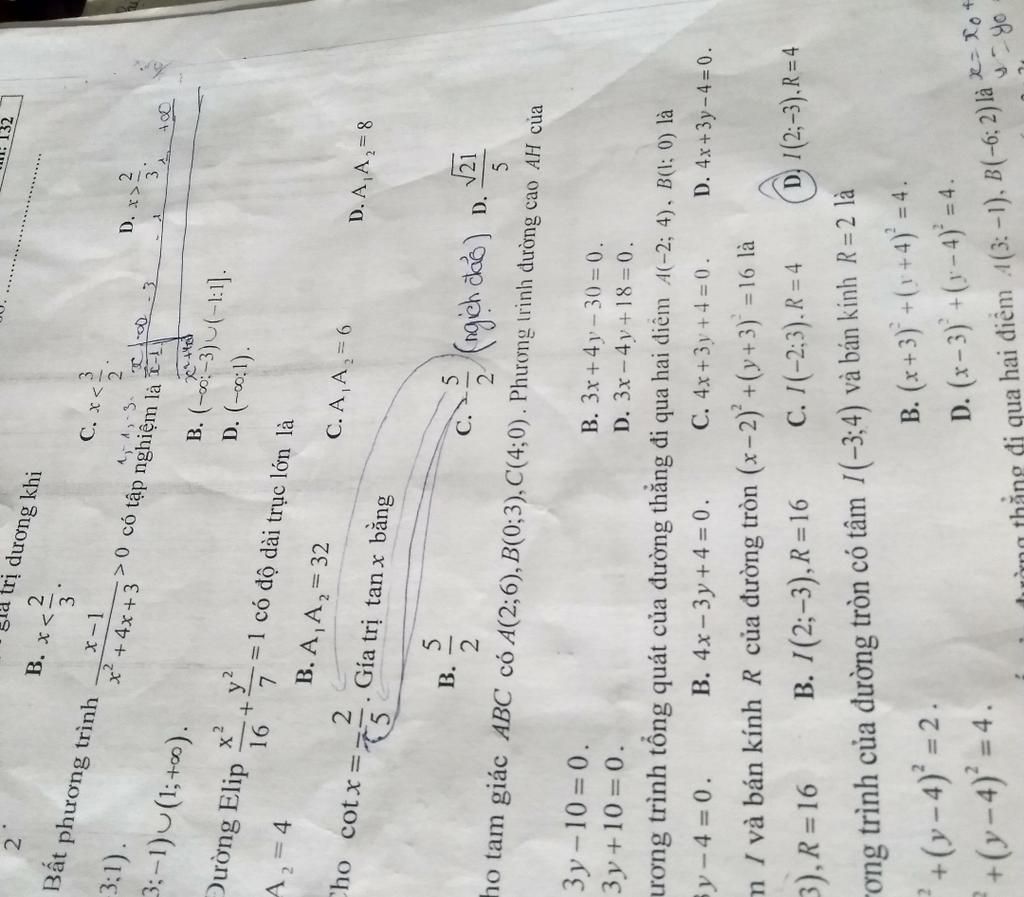 2.
giá trị dương khi
B. x < 2/3.
C. x < 3/2.
D. x > 2/3.
132
Bất phương trình (x − 1)/(x² + 4x + 3) > 0 có tập nghiệm là
3;1).
B. (−∞;−3)∪(−1;1].
3;−1)∪(1;+∞).
D. (−∞;1).
Đường Elip x²/16 + y²/7 = 1 có độ dài trục lớn là
A₂ = 4
B. A₁A₂ = 32
C. A₁A₂ = 6
D. A₁A₂ = 8
Cho cot x = −2/5. Gía trị tan x bằng
B. 5/2
C. −5/2
(nghịch đảo)
D. √21/5
ho tam giác ABC có A(2;6), B(0;3), C(4;0). Phương trình đường cao AH của
3y − 10 = 0.
B. 3x + 4y − 30 = 0.
3y + 10 = 0.
D. 3x − 4y + 18 = 0.
ương trình tổng quát của đường thẳng đi qua hai điểm A(−2; 4), B(1; 0) là
y − 4 = 0.
B. 4x − 3y + 4 = 0.
C. 4x + 3y + 4 = 0.
D. 4x + 3y − 4 = 0.
I và bán kính R của đường tròn (x − 2)² + (y + 3)² = 16 là
3), R = 16
B. I(2;−3), R = 16
C. I(−2;3), R = 4
D. I(2;−3), R = 4
ơng trình của đường tròn có tâm I(−3;4) và bán kính R = 2 là
² + (y − 4)² = 2.
B. (x + 3)² + (y + 4)² = 4.
² + (y − 4)² = 4.
D. (x − 3)² + (y − 4)² = 4.
thẳng đi qua hai điểm A(3; −1), B(−6; 2) là